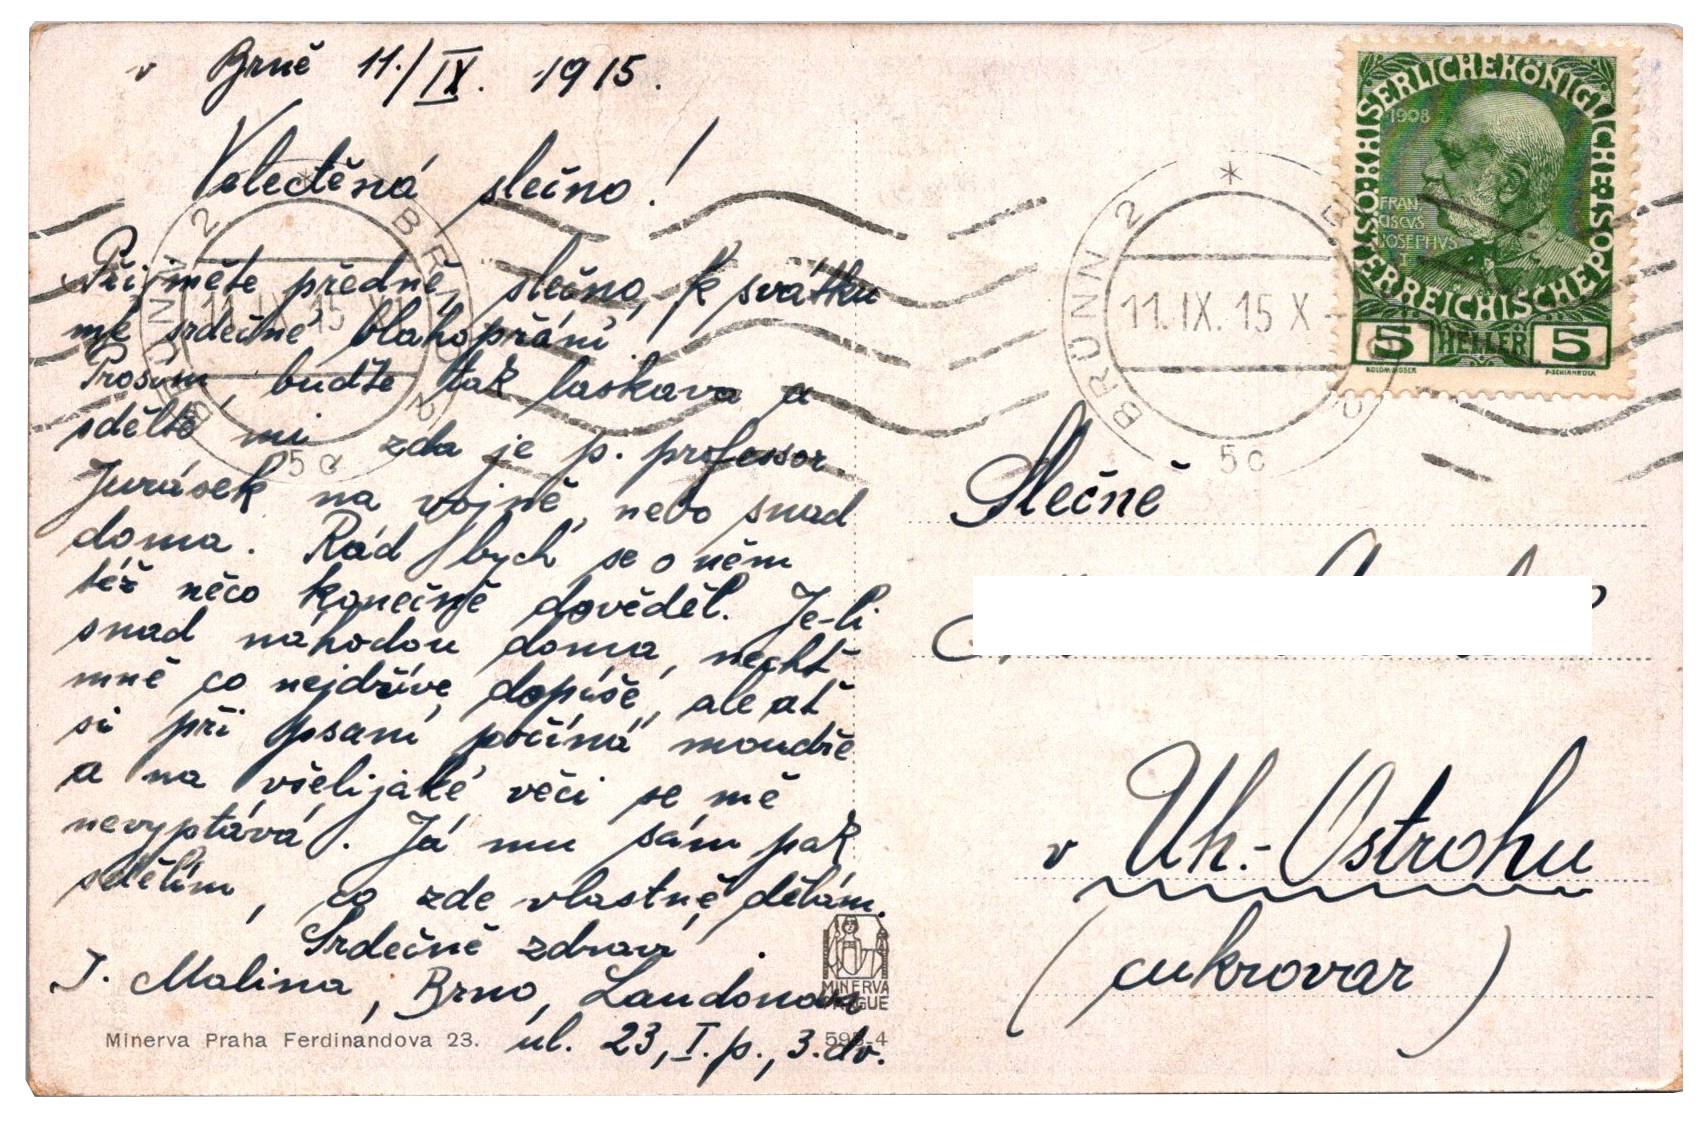 v Brně 11./IX. 1915.
Velectěná slečno!
Přijměte předně, slečno, k svátku
mé srdečné blahopřání.
Prosím, buďte tak laskava a
sdělte mi zda je p. professor
Jurásek na vojně, nebo snad
doma. Rád bych se o něm
též něco konečně dověděl. Je-li
snad náhodou doma, nechť
mně co nejdříve dopíše, ale ať
si při psaní počíná moudře
a na všelijaké věci se mě
nevyptává. Já mu sám pak
sdělím, co zde vlastně dělám.
Srdečně zdraví
J. Malina, Brno, Laudonova
ul. 23, I. p., 3. dv.
Minerva Praha Ferdinandova 23.
MINERVA
PRAGUE
BRÜNN 2 * BRNO 2
11. IX. 15 XI
5a
BRÜNN 2 *
11. IX. 15 X-
5c
KAISERLICHE KÖNIGLICHE
ÖSTERREICHISCHE POST
1908
FRAN
CISCVS
IOSEPHVS
I
5 HELLER 5
Slečně
v Uh.-Ostrohu
(cukrovar)